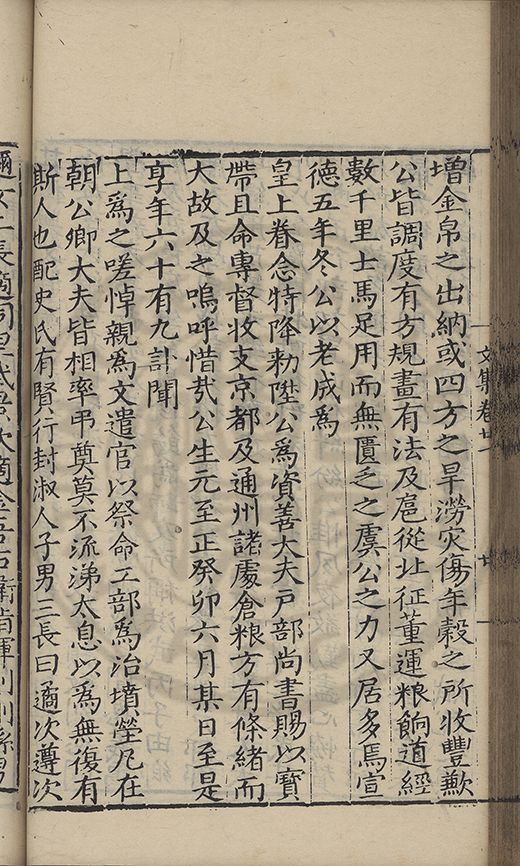 增金帛之出納或四方之旱澇灾傷年穀之所收豐歉
公皆調度有方規畫有法及扈從北征董運粮餉道經
數千里士馬足用而無匱乏之虞公之力又居多焉宣
德五年冬公以老成為
皇上眷念特降勑陞公為資善大夫戶部尚書賜以寶
帶且命專督收支京都及通州諸處倉粮方有條緒而
大故及之嗚呼惜㢤公生元至正癸卯六月某日至是
享年六十有九訃聞
上為之嗟悼親為文遣官以祭命工部為治墳塋凡在
朝公卿大夫皆相率弔奠莫不流涕太息以為無復有
斯人也配史氏有賢行封淑人子男三長曰遹次遵次
文集卷廿一
廿